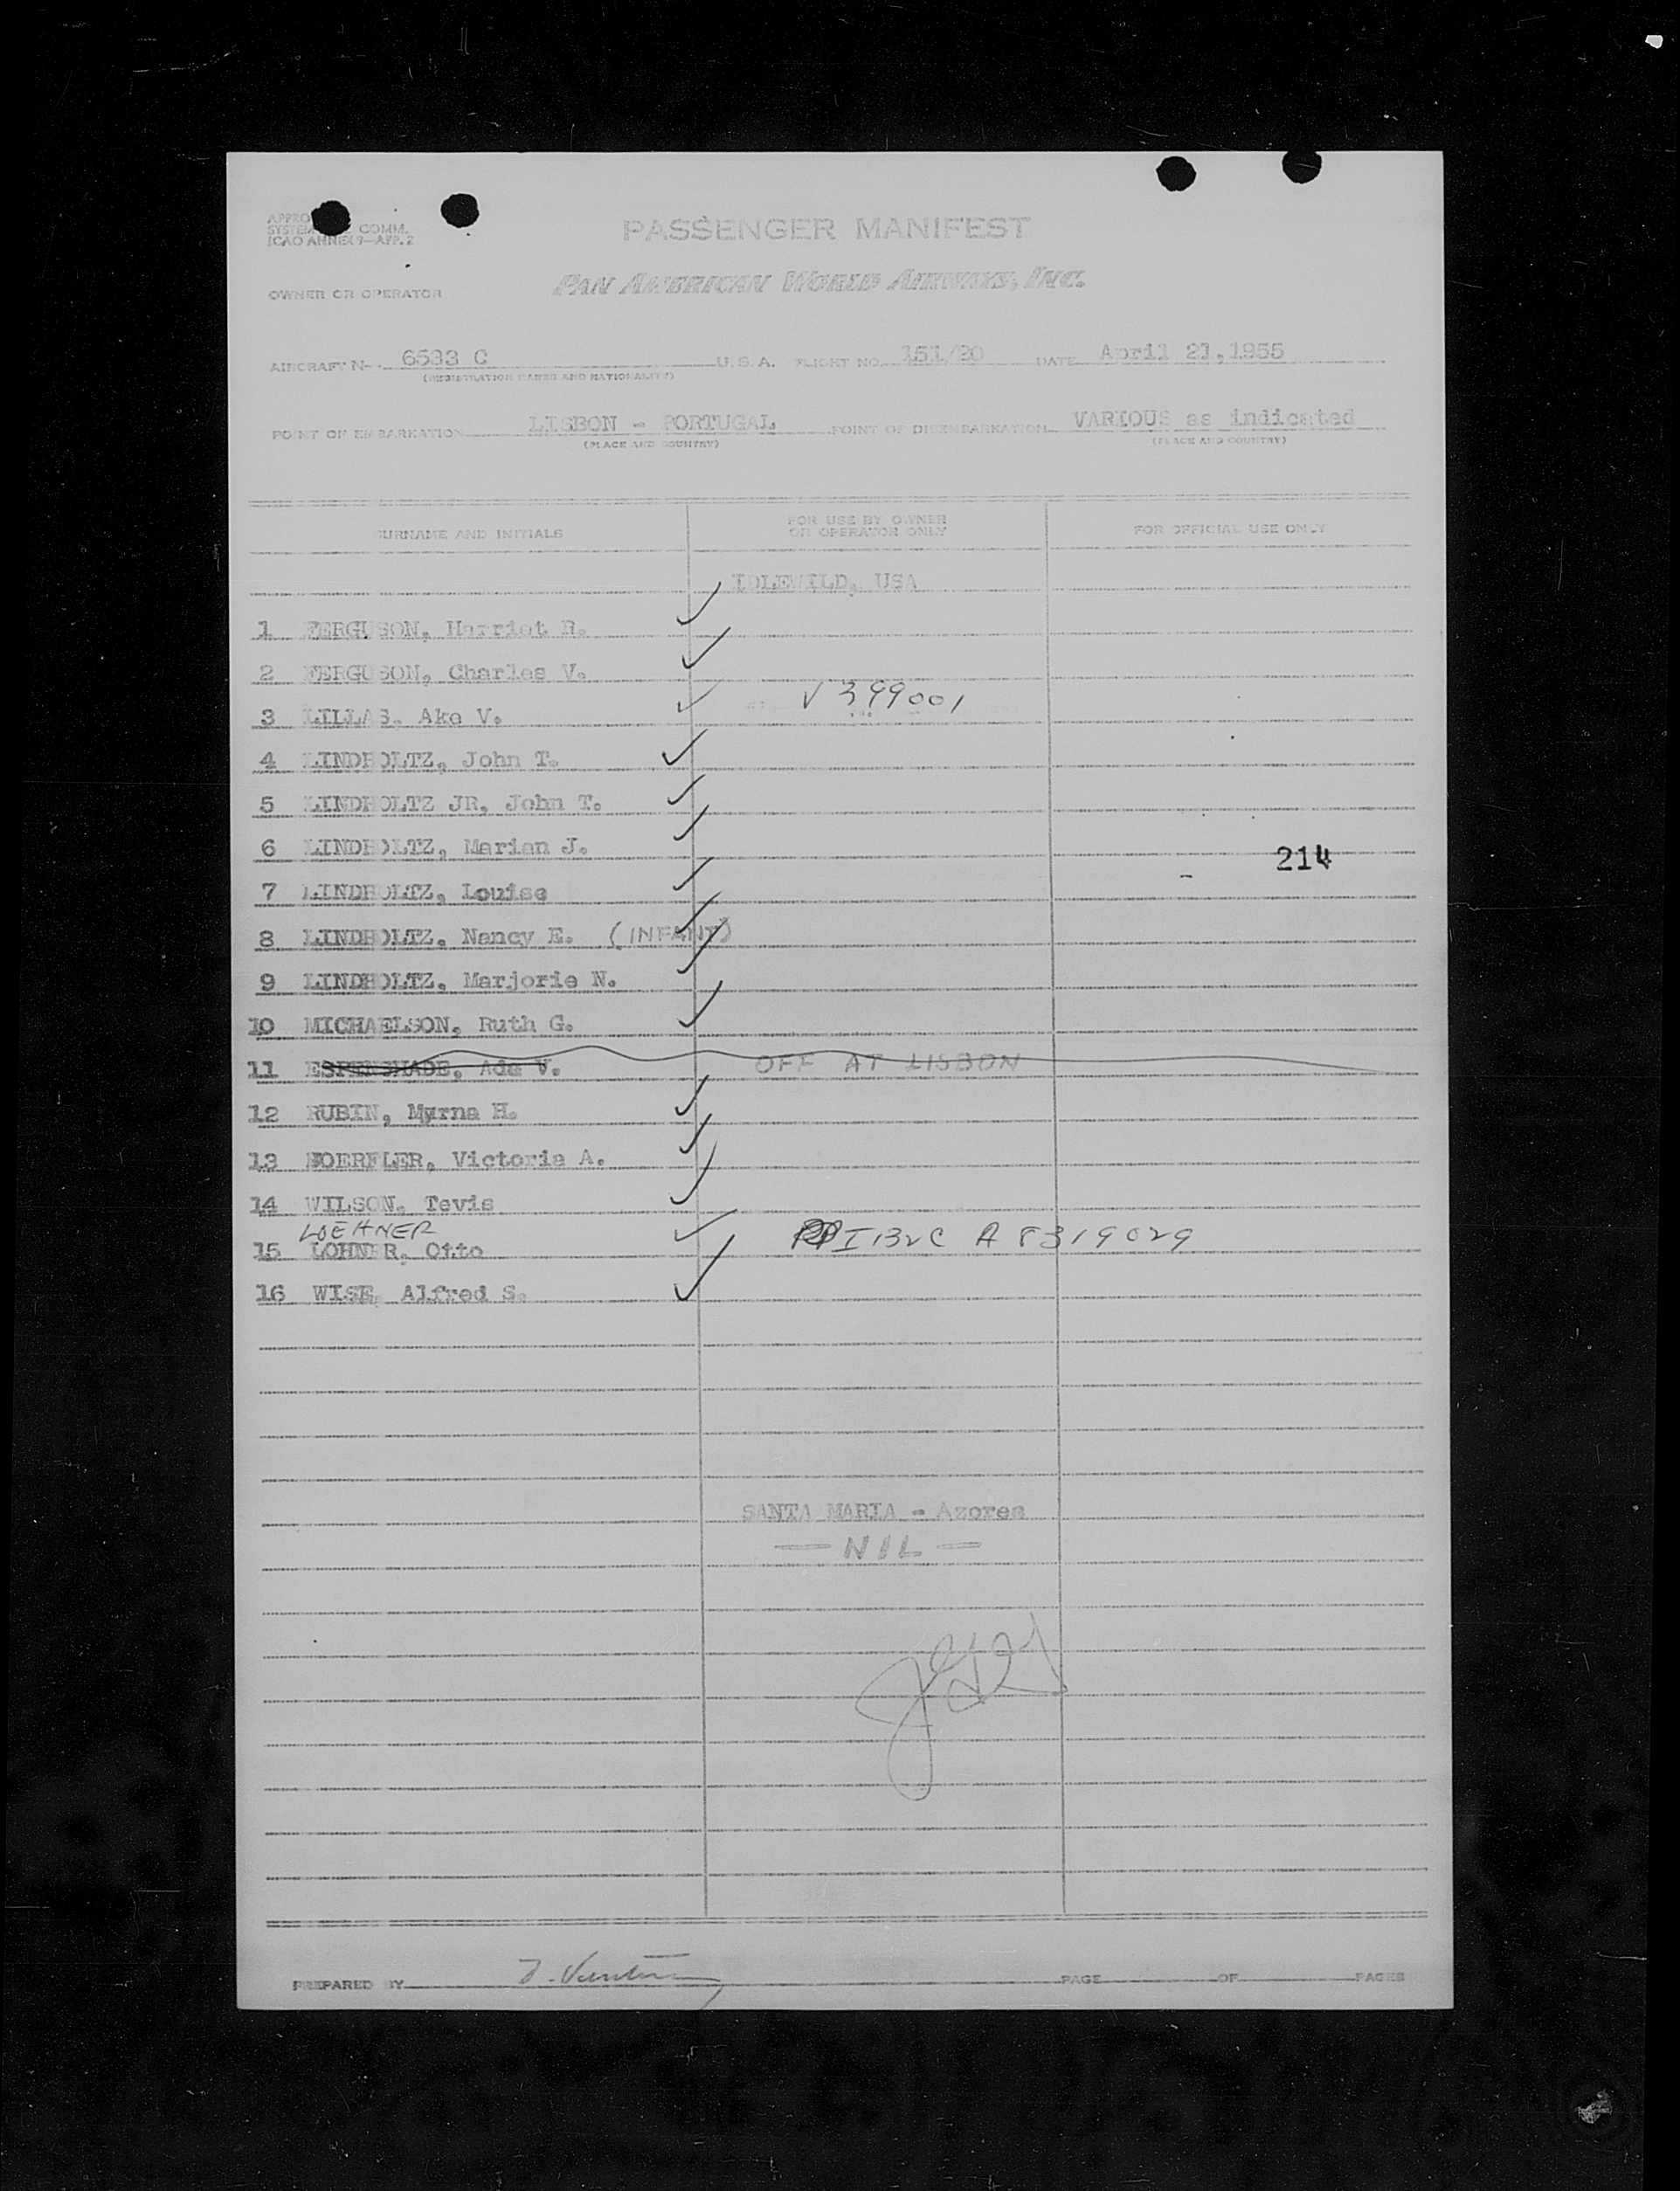 APPRO
SYSTEM COMM.
ICAO ANNEX 9—APP. 2
PASSENGER MANIFEST
OWNER OR OPERATOR
PAN AMERICAN WORLD AIRWAYS, INC.
AIRCRAFT N— 6533 C U.S.A. FLIGHT NO. 151/20 DATE April 21, 1955
(REGISTRATION MARKS AND NATIONALITY)
POINT OF EMBARKATION LISBON - PORTUGAL POINT OF DISEMBARKATION VARIOUS as indicated
(PLACE AND COUNTRY) (PLACE AND COUNTRY)
SURNAME AND INITIALS FOR USE BY OWNER OR OPERATOR ONLY FOR OFFICIAL USE ONLY
IDLEWILD, USA
1 FERGUSON, Harriet R.
2 FERGUSON, Charles V.
3 LILLAS, Ake V. V 399001
4 LINDHOLTZ, John T.
5 LINDHOLTZ JR, John T.
6 LINDHOLTZ, Marian J.
214
7 LINDHOLTZ, Louise
8 LINDHOLTZ, Nancy E. (INFANT)
9 LINDHOLTZ, Marjorie N.
10 MICHAELSON, Ruth G.
11 ESPENSHADE, Ada V. OFF AT LISBON
12 RUBIN, Myrna H.
13 Victoria A.
14 WILSON, Tevis
LOEHNER
15 LOHNER, Otto I132C A 8319029
16 WISE, Alfred S.
SANTA MARIA - Azores
— NIL —
PREPARED BY PAGE OF PAGES